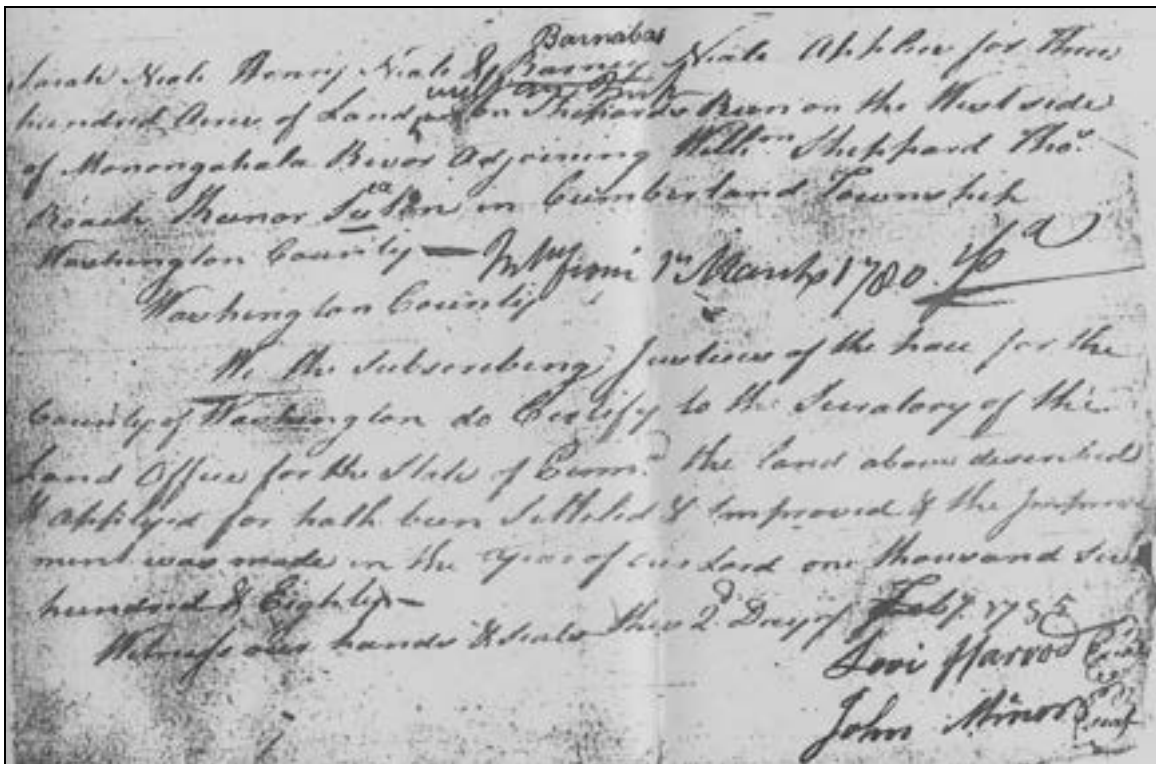 Barnabas
Neale Henry Neale & Barney Neale Applies for Three
hundred Acres of Land on Shepards Run on the West side
of Monongahala River Adjoining Willm Sheppard Thos.
Roach in Cumberland Township
Washington County — Int from 1st March 1780.
Washington County
We the subscribing Justices of the Peace for the
County of Washington do Certify to the Secratory of the
Land Office for the State of Penna the land above described
& applyed for hath been Setteled & Improved & the Improve
ment was made in the year of our Lord one thousand Seven
hundred & Eighty —
Witness our hands & seals this 2d Day of Feby. 1785
Levi Harrod Seal
John Minor Seal